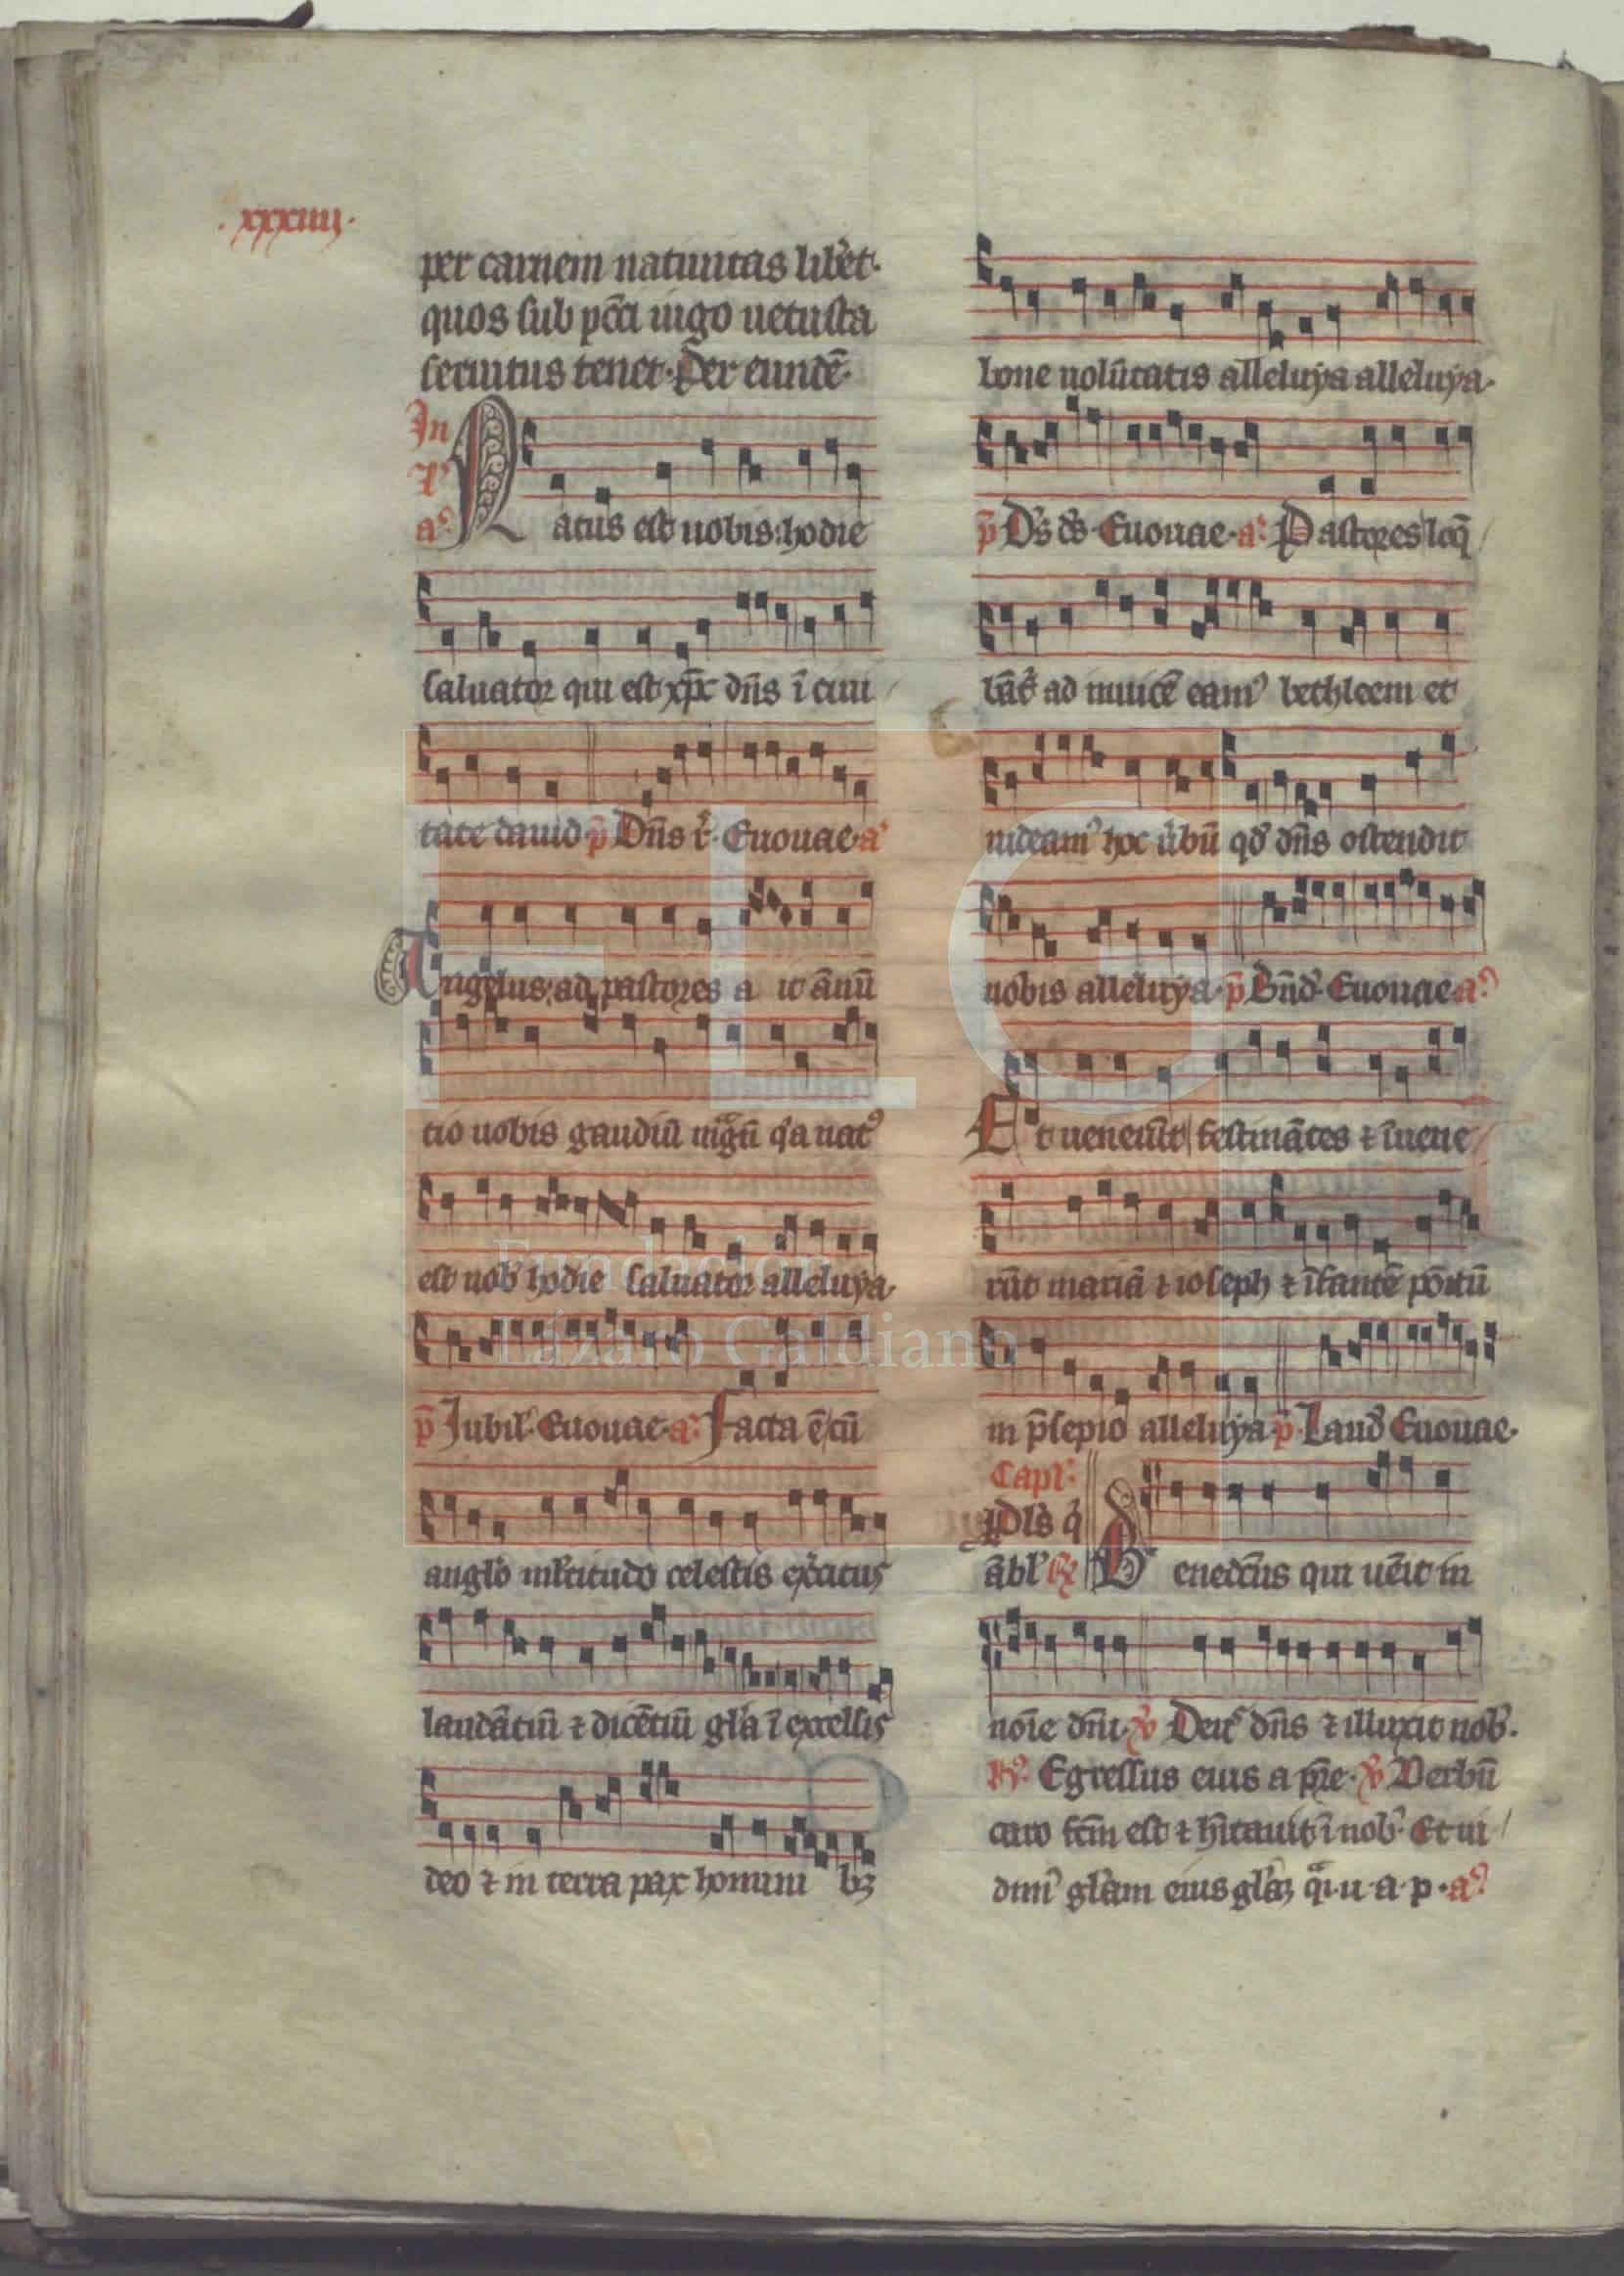 .xxxiiij.
per carnem natiuitas lib'et.
quos sub pcc̄i iugo uetusta
seruitus tenet. Per eundē.
In
a⁹
Natus est uobis hodie
saluator qui est xp̄c dn̄s ī ciui
tate dauid. p̄ Dn̄s r̄. Euouae. a⁹
Angelus ad pastores a it ānū
tio uobis gaudiū mᵃgnū q'a nat⁹
est uob' hodie saluator alleluya.
p̄ Iubil'. Euouae. a⁹ Facta ē cū
anglo ml'titudo celestis ex'citus
laudātiū ⁊ dicētiū gl'a ī excelsis
deo ⁊ in terra pax homini bꝫ
bone uolūtatis alleluya alleluya.
p̄ Ds ds. Euouae. a⁹ Pastores loq̄
bāt' ad inuicē eam⁹ bethleem et
uideam⁹ hoc ūbū qd' dn̄s ostendit
nobis alleluya. p̄ Bn̄d'. Euouae. a⁹
Et uenerūt festinātes ⁊ īuene
rūt mariā ⁊ ioseph ⁊ īfantē positū
in p̄sepio alleluya. p̄ Laud' Euouae.
Capl'.
ābl' ℟ Benedc̄tus qui uēit in
noīe dn̄i. ℣ Deus dn̄s ⁊ illuxit nob'.
℟. Egressus eius a pr̄e. ℣ Verbū
caro fc̄m est ⁊ hītauit ī nob'. Et ui
dim⁹ gl'am eius gl'aꝫ qᵃi. u. a. p. a⁹
FLG
Fundación
Lázaro Galdiano